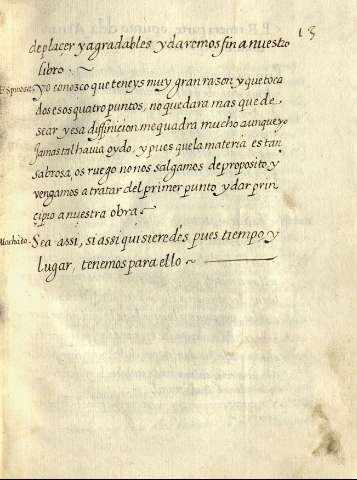 13
de placer y agradables y daremos fin a nuestro
libro. ~
Espinosa. yo conozco que teneys muy gran razon y que toca
dos esos quatro puntos, no quedara mas que de
sear, y esa diffinicion me quadra mucho aunque yo
Jamas tal havia oydo, y pues que la materia es tan
sabrosa, os ruego no nos salgamos de proposito y
vengamos a tratar del primer punto y dar prin
cipio a nuestra obra ~
Machado. Sea assi, si assi quisieredes pues tiempo y
lugar, tenemos para ello ~